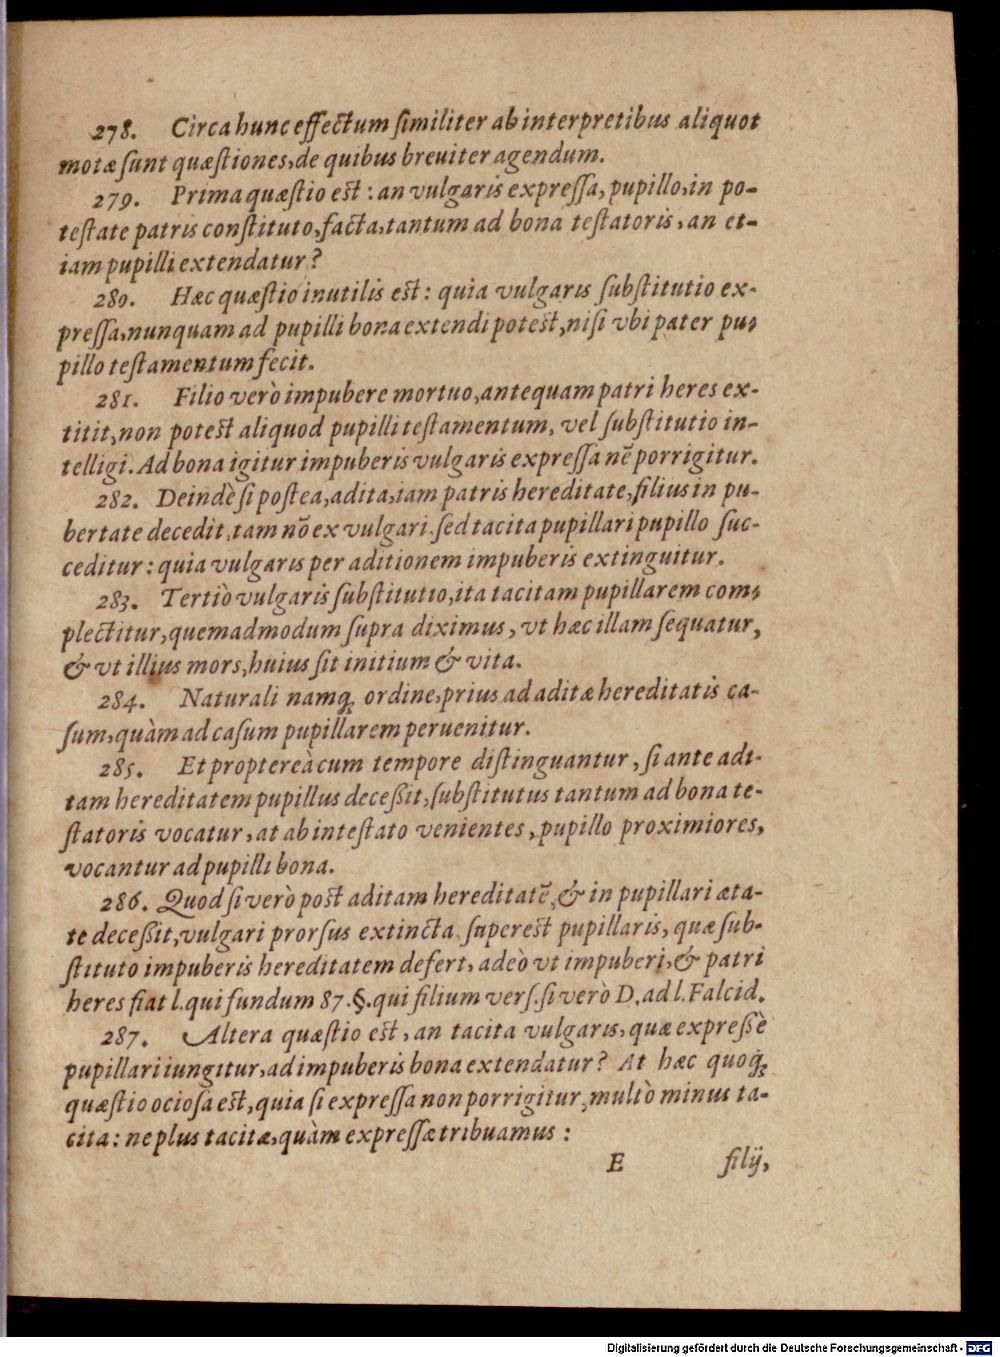 278. Circa hunc effectum ſimiliter ab interpretibus aliquot
motæ ſunt quæſtiones, de quibus breuiter agendum.
279. Prima quæſtio est: an vulgaris expreſſa, pupillo, in po-
teſtate patris conſtituto, facta, tantum ad bona teſtatoris, an et-
iam pupilli extendatur?
280. Hæc quæſtio inutilis est: quia vulgaris ſubſtitutio ex-
preſſa, nunquam ad pupilli bona extendi potest, niſi vbi pater pu-
pillo teſtamentum fecit.
281. Filio verò impubere mortuo, antequam patri heres ex-
titit, non potest aliquod pupilli teſtamentum, vel ſubſtitutio in-
telligi. Ad bona igitur impuberis vulgaris expreſſa nē porrigitur.
282. Deindè ſi poſtea, adita, iam patris hereditate, filius in pu-
bertate decedit, tam nō ex vulgari, ſed tacita pupillari pupillo ſuc-
ceditur: quia vulgaris per aditionem impuberis extinguitur.
283. Tertiò vulgaris ſubſtitutio, ita tacitam pupillarem com-
plectitur, quemadmodum ſupra diximus, vt hæc illam ſequatur,
& vt illius mors, huius ſit initium & vita.
284. Naturali namq; ordine, prius ad aditæ hereditatis ca-
ſum, quàm ad caſum pupillarem peruenitur.
285. Et proptereà cum tempore diſtinguantur, ſi ante adi-
tam hereditatem pupillus deceßit, ſubſtitutus tantum ad bona te-
ſtatoris vocatur, at ab inteſtato venientes, pupillo proximiores,
vocantur ad pupilli bona.
286. Quod ſi verò post aditam hereditatē, & in pupillari æta-
te deceßit, vulgari prorſus extincta ſuperest pupillaris, quæ ſub-
ſtituto impuberis hereditatem defert, adeò vt impuberi, & patri
heres fiat l. qui fundum 87. §. qui filium verſ. ſi verò D. ad l. Falcid.
287. Altera quæſtio est, an tacita vulgaris, quæ expreßè
pupillari iungitur, ad impuberis bona extendatur? At hæc quoq;
quæſtio ocioſa est, quia ſi expreſſa non porrigitur, multò minus ta-
cita: ne plus tacitæ, quàm expreſſæ tribuamus:
E filij,
Digitalisierung gefördert durch die Deutsche Forschungsgemeinschaft - DFG